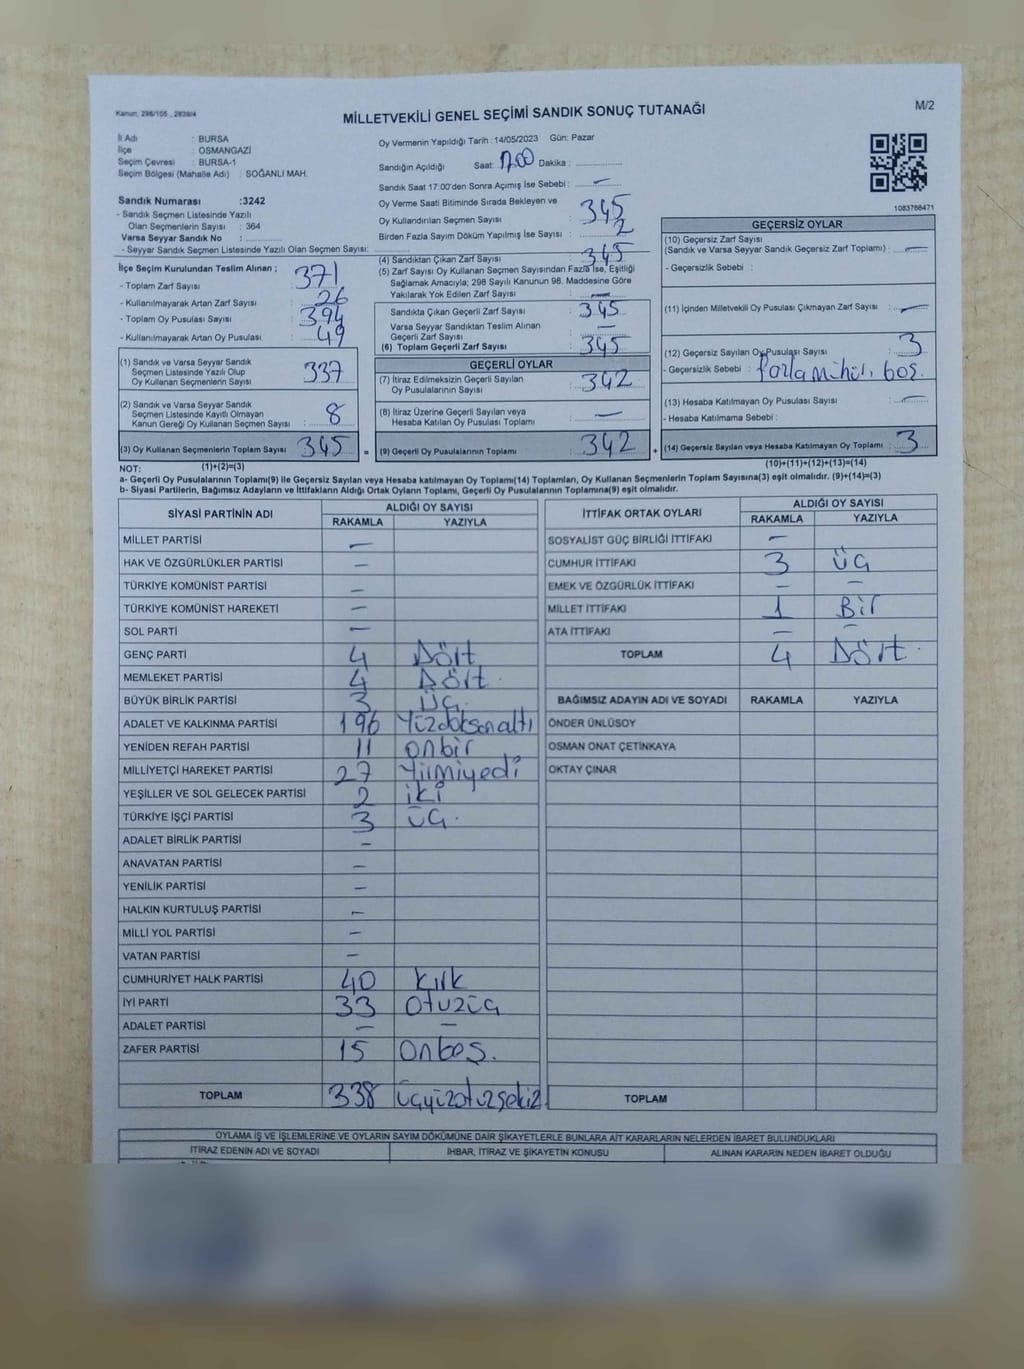 Kanun; 298/105 , 2839/4
M/2
MİLLETVEKİLİ GENEL SEÇİMİ SANDIK SONUÇ TUTANAĞI
İl Adı : BURSA
İlçe : OSMANGAZİ
Seçim Çevresi : BURSA-1
Seçim Bölgesi (Mahalle Adı) : SOĞANLI MAH.
Oy Vermenin Yapıldığı Tarih : 14/05/2023 Gün: Pazar
Sandığın Açıldığı Saat: 17.00 Dakika :
Sandık Saat 17:00'den Sonra Açımış İse Sebebi : —
Oy Verme Saati Bitiminde Sırada Bekleyen ve
Oy Kullandırılan Seçmen Sayısı : 345
Birden Fazla Sayım Döküm Yapılmış İse Sayısı : 2
1083768471
Sandık Numarası :3242
- Sandık Seçmen Listesinde Yazılı
Olan Seçmenlerin Sayısı : 364
Varsa Seyyar Sandık No :
- Seyyar Sandık Seçmen Listesinde Yazılı Olan Seçmen Sayısı:
İlçe Seçim Kurulundan Teslim Alınan ;
- Toplam Zarf Sayısı : 371
- Kullanılmayarak Artan Zarf Sayısı : 26
- Toplam Oy Pusulası Sayısı : 394
- Kullanılmayarak Artan Oy Pusulası : 49
(1) Sandık ve Varsa Seyyar Sandık
Seçmen Listesinde Yazılı Olup
Oy Kullanan Seçmenlerin Sayısı : 337
(2) Sandık ve Varsa Seyyar Sandık
Seçmen Listesinde Kayıtlı Olmayan
Kanun Gereği Oy Kullanan Seçmen Sayısı : 8
(3) Oy Kullanan Seçmenlerin Toplam Sayısı : 345 =
(4) Sandıktan Çıkan Zarf Sayısı : 345
(5) Zarf Sayısı Oy Kullanan Seçmen Sayısından Fazla İse, Eşitliği
Sağlamak Amacıyla; 298 Sayılı Kanunun 98. Maddesine Göre
Yakılarak Yok Edilen Zarf Sayısı : —
Sandıkta Çıkan Geçerli Zarf Sayısı : 345
Varsa Seyyar Sandıktan Teslim Alınan
Geçerli Zarf Sayısı : —
(6) Toplam Geçerli Zarf Sayısı : 345
GEÇERLİ OYLAR
(7) İtiraz Edilmeksizin Geçerli Sayılan
Oy Pusulalarının Sayısı : 342
(8) İtiraz Üzerine Geçerli Sayılan veya
Hesaba Katılan Oy Pusulası Toplamı : —
(9) Geçerli Oy Pusulalarının Toplamı : 342 +
GEÇERSİZ OYLAR
(10) Geçersiz Zarf Sayısı
(Sandık ve Varsa Seyyar Sandık Geçersiz Zarf Toplamı) : —
- Geçersizlik Sebebi :
(11) İçinden Milletvekili Oy Pusulası Çıkmayan Zarf Sayısı : —
(12) Geçersiz Sayılan Oy Pusulası Sayısı : 3
- Geçersizlik Sebebi : boş.
(13) Hesaba Katılmayan Oy Pusulası Sayısı : —
- Hesaba Katılmama Sebebi :
(14) Geçersiz Sayılan veya Hesaba Katılmayan Oy Toplamı : 3
NOT: (1)+(2)=(3) (10)+(11)+(12)+(13)=(14)
a- Geçerli Oy Pusulalarının Toplamı(9) ile Geçersiz Sayılan veya Hesaba katılmayan Oy Toplamı(14) Toplamları, Oy Kullanan Seçmenlerin Toplam Sayısına(3) eşit olmalıdır. (9)+(14)=(3)
b- Siyasi Partilerin, Bağımsız Adayların ve İttifakların Aldığı Ortak Oyların Toplamı, Geçerli Oy Pusulalarının Toplamına(9) eşit olmalıdır.
SİYASİ PARTİNİN ADI ALDIĞI OY SAYISI
RAKAMLA YAZIYLA
MİLLET PARTİSİ —
HAK VE ÖZGÜRLÜKLER PARTİSİ —
TÜRKİYE KOMÜNİST PARTİSİ —
TÜRKİYE KOMÜNİST HAREKETİ —
SOL PARTİ —
GENÇ PARTİ 4 Dört
MEMLEKET PARTİSİ 4 Dört.
BÜYÜK BİRLİK PARTİSİ 3 Üç.
ADALET VE KALKINMA PARTİSİ 196 Yüzdoksanaltı
YENİDEN REFAH PARTİSİ 11 onbir
MİLLİYETÇİ HAREKET PARTİSİ 27 Yirmiyedi
YEŞİLLER VE SOL GELECEK PARTİSİ 2 iki
TÜRKİYE İŞÇİ PARTİSİ 3 üç.
ADALET BİRLİK PARTİSİ —
ANAVATAN PARTİSİ —
YENİLİK PARTİSİ —
HALKIN KURTULUŞ PARTİSİ —
MİLLİ YOL PARTİSİ —
VATAN PARTİSİ —
CUMHURİYET HALK PARTİSİ 40 kırk
İYİ PARTİ 33 otuzüç
ADALET PARTİSİ — —
ZAFER PARTİSİ 15 Onbeş.
TOPLAM 338 üçyüzotuzsekiz
İTTİFAK ORTAK OYLARI ALDIĞI OY SAYISI
RAKAMLA YAZIYLA
SOSYALİST GÜÇ BİRLİĞİ İTTİFAKI —
CUMHUR İTTİFAKI 3 üç
EMEK VE ÖZGÜRLÜK İTTİFAKI — —
MİLLET İTTİFAKI 1 Bir
ATA İTTİFAKI — —
TOPLAM 4 Dört.
BAĞIMSIZ ADAYIN ADI VE SOYADI RAKAMLA YAZIYLA
ÖNDER ÜNLÜSOY
OSMAN ONAT ÇETİNKAYA
OKTAY ÇINAR
TOPLAM
OYLAMA İŞ VE İŞLEMLERİNE VE OYLARIN SAYIM DÖKÜMÜNE DAİR ŞİKAYETLERLE BUNLARA AİT KARARLARIN NELERDEN İBARET BULUNDUKLARI
İTİRAZ EDENİN ADI VE SOYADI İHBAR, İTİRAZ VE ŞİKAYETİN KONUSU ALINAN KARARIN NEDEN İBARET OLDUĞU